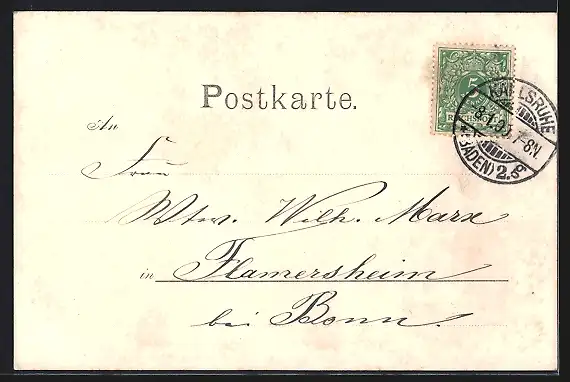 Postkarte.
5
REICHSPOST
KARLSRUHE
7-8N.
(BADEN) 2.
An
Frau
Wtw. Wilh. Marx
in Flamersheim
bei Bonn.